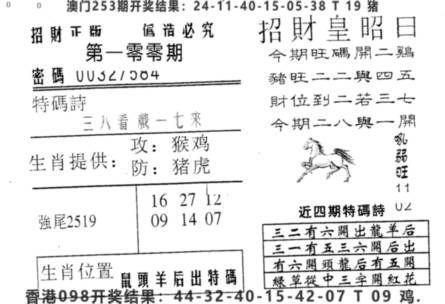 澳门253期开奖结果：24-11-40-15-05-38 T 19 猪
招財正版 偽造必究
第一零零期
密碼 00327584
特碼詩
三八看龍一七來
生肖提供： 攻：猴鸡
防：猪虎
強尾2519
16 27 12
09 14 07
生肖位置 鼠頭羊后出特碼
招財皇昭曰
今期旺碼開二鷄
豬旺二二與四五
財位到二若三七
今期二八與一開
旺
11
02
近四期特碼詩
三二有六開出龍羊后
三一有五三六開后出
有六開頭龍后有五開
綠草從中三字開紅花
香港098开奖结果：44-32-40-15-42-07 T 09 鸡.